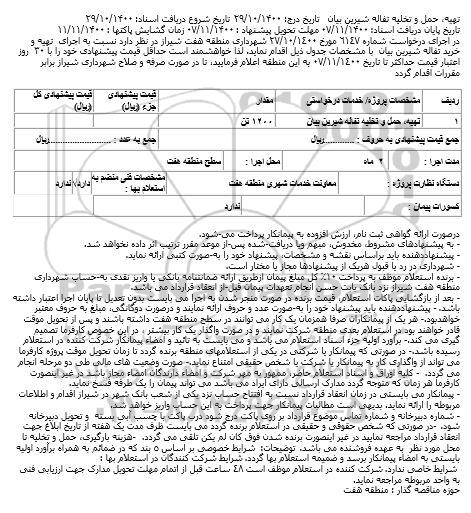 تهیه، حمل و تخلیه تفاله شیرین بیان   تاریخ درج: ۲۹/۱۰/۱۴۰۰  تاریخ شروع دریافت اسناد: ۲۹/۱۰/۱۴۰۰
تاریخ پایان دریافت اسناد: ۰۷/۱۱/۱۴۰۰ مهلت تحویل پیشنهاد : ۰۷/۱۱/۱۴۰۰ زمان گشایش پاکتها : ۱۱/۱۱/۱۴۰۰
در اجرای درخواست شماره ٦١٤٧ مورخ ۲۷/۱۰/۱٤۰۰ شهرداری منطقه هفت شیراز در نظر دارد نسبت به اجرای  تهیه و
خرید تفاله شیرین بیان  با مشخصات جدول ذیل اقدام نماید، لذا خواهشمند است حداقل قیمت پیشنهادی خود را با ۳۰ روز
اعتبار قیمت حداکثر تا تاریخ ۰۷/۱۱/۱٤۰۰ به این منطقه اعلام فرمایید، تا در صورت صرفه و صلاح شهرداری شیراز برابر
مقررات اقدام گردد
ردیف  مشخصات پروژه/ خدمات درخواستی  مقدار  قیمت پیشنهادی جزء (ریال)  قیمت پیشنهادی کل (ریال)
۱  تهیه، حمل و تخلیه تفاله شیرین بیان  ۱۲۰۰ تن
جمع قیمت پیشنهادی به حروف : ............ریال  جمع به عدد : ........................ریال
مدت اجرا :  ۲  ماه  محل اجرا :  سطح منطقه هفت
دستگاه نظارت پروژه :  معاونت خدمات شهری منطقه هفت  مشخصات فنی منضم به استعلام بها :  دارد/ ندارد
کسورات پیمان :  ندارد
درصورت ارائه گواهی ثبت نام، ارزش افزوده به پیمانکار پرداخت می-شود.
- به پیشنهادهای مشروط، مخدوش، مبهم ویا دریافت-شده پس-از موعد مقرر ترتیب اثر داده نخواهد شد.
- پیشنهاددهنده باید براساس نقشه و مشخصات، پیشنهاد خود را به-صورت کتبی ارائه نماید.
- شهرداری در رد یا قبول هریک از پیشنهادها مجاز یا مختار است.
- برنده استعلام موظف به پرداخت ۱۰٪ کل مبلغ پیمان ازطریق ارائه ضمانتنامه بانکی یا واریز نقدی به-حساب شهرداری
منطقه هفت شیراز نزد بانک بابت حسن انجام تعهدات پیمان قبل-از انعقاد قرارداد می باشد.
- بعد از بازگشایی پاکات استعلام، قیمت برنده در صورت منجر شدن به اجرا می بایست بدون تعدیل تا پایان اجرا اعتبار داشته
باشد. - پیشنهاددهنده باید پیشنهاد خود را به-صورت عدد و حروف ارائه نمایند و درصورت دوگانگی، مبلغ به حروف معتبر
خواهدبود.- هر یک از پیمانکاران صرفا همزمان یک کار می توانند در سطح منطقه هفت داشته باشند و پس از تحویل موقت
قادر خواهند بود در استعلام بعدی منطقه شرکت نمایند و در صورت واگذار یک کار بیشتر ، در این خصوص کارفرما تصمیم
گیری می کند.- برآورد اولیه جزء اسناد استعلام می باشد و می بایست به تائید و امضاء پیمانکار شرکت کننده در استعلام
رسیده باشد.- در صورتی که پیمانکار یا شرکتی در یکی از استعلامهای منطقه برنده گردد تا زمان تحویل موقت پروژه کارفرما
می تواند از واگذاری کار به پیمانکار یا شرکت یا شخص حقیقی امتناع نماید.- صورت وضعیت های مالی طی دو مرحله انجام
می گردد.  - کلیه اوراق و اسناد استعلام حاضر، ممهور به مهر شرکت و امضاء دارندگان امضاء مجاز باشد در غیر اینصورت
کارفرما هر زمان که متوجه گردد مدارک ارسالی دارای ایراد می باشد می تواند پیمان را یک طرفه فسخ نماید.
- پیمانکار می بایستی در زمان انعقاد قرارداد نسبت به افتتاح حساب نزد یکی از شعب بانک شهر در شیراز اقدام و اطلاعات
مربوطه را ارائه نماید، بدیهی است مطالبات پیمانکار جهت پرداخت به این حساب واریز خواهد شد.
- شماره دبیرخانه و شماره تماس موضوع قرارداد بر روی پاکت درج شود درب پاکت با چسب آبی بسته  و تحویل دبیرخانه
شود. -در صورتی که شخص حقوقی و حقیقی در استعلام برنده گردد می بایست ظرف مدت یک هفته از تاریخ ابلاغ جهت
انعقاد قرارداد مراجعه نمایید در غیر اینصورت برنده شدن فوق کان لم یکن تلقی می گردد.  -هزینه بارگیری، حمل و تخلیه تا
محل مورد نظر  به عهده فروشنده می باشد. توضیحات:  شرایط خصوصی بر اساس ۵ بند که در ضمائم به همراه برآورد اولیه
بایستی به امضاء پیمانکار برسد و ضمیمه استعلام بها گردد. شرایط شرکت کنندگان در استعلام بها :
شرایط خاصی ندارد. شرکت کننده در استعلام موظف است ٤٨ ساعت قبل از اتمام مهلت تحویل مدارک جهت ارزیابی فنی
به واحد مربوطه مراجعه نماید.
حوزه مناقصه گذار : منطقه هفت